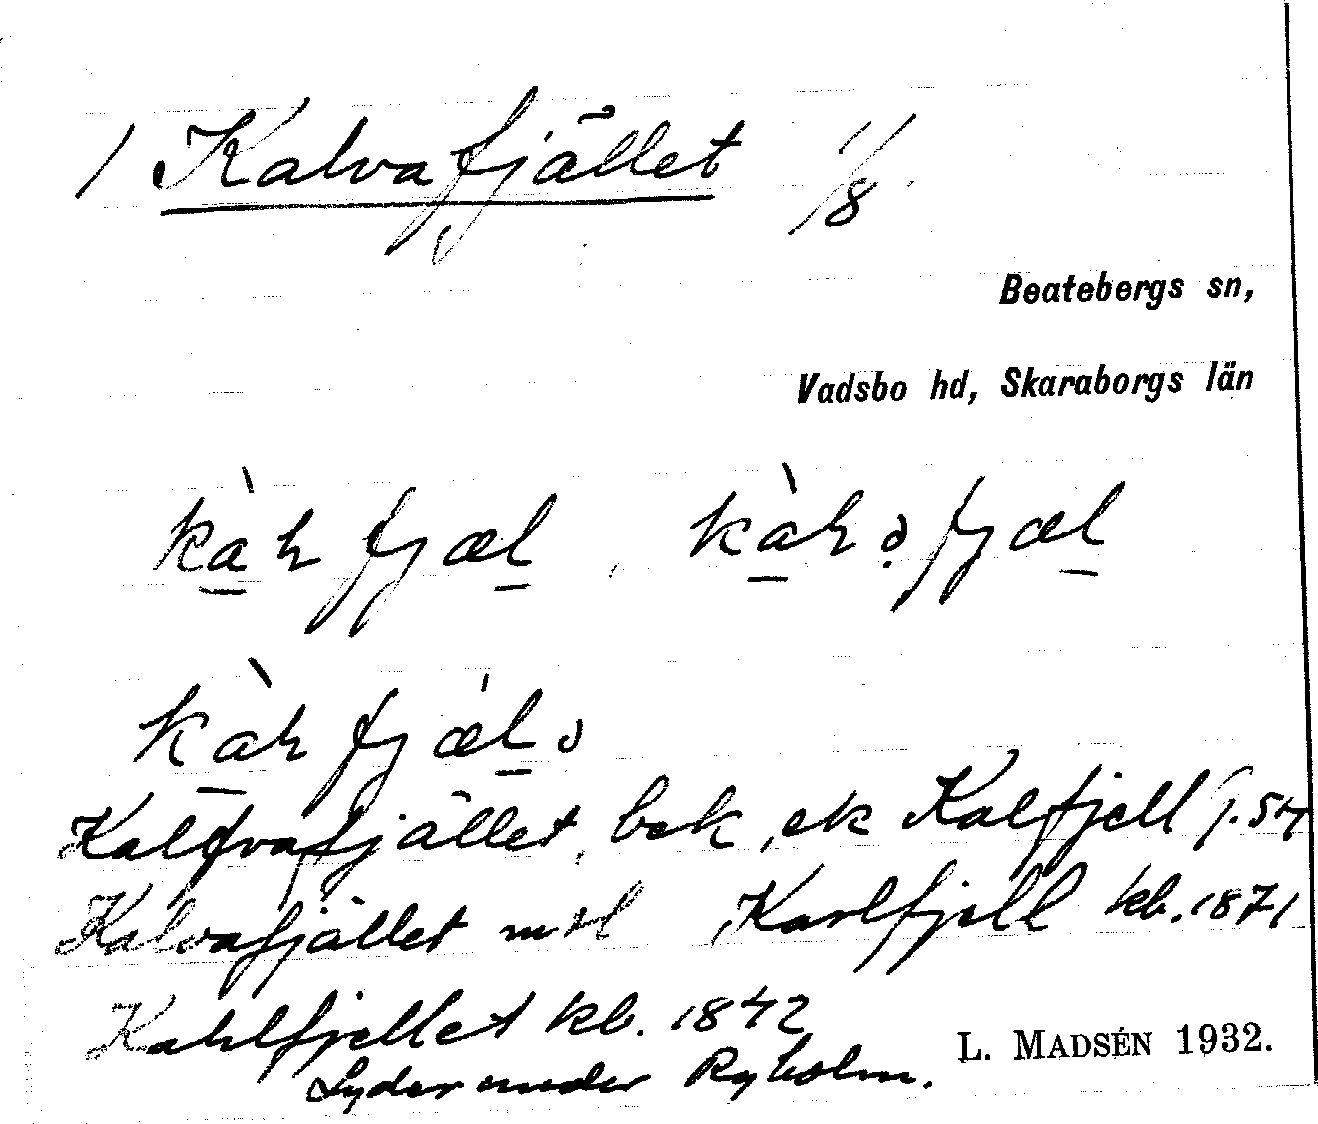 1 Kalvafjället 1/8
Beatebergs sn,
Vadsbo hd, Skaraborgs län
Kalfvafjället, bek, ek Kalfjell G. 54
Kalvafjället mtl Karlfjell kb. 1871
Kahlfjellet kb. 1842
Lyder under Ryholm.
L. MADSÉN 1932.